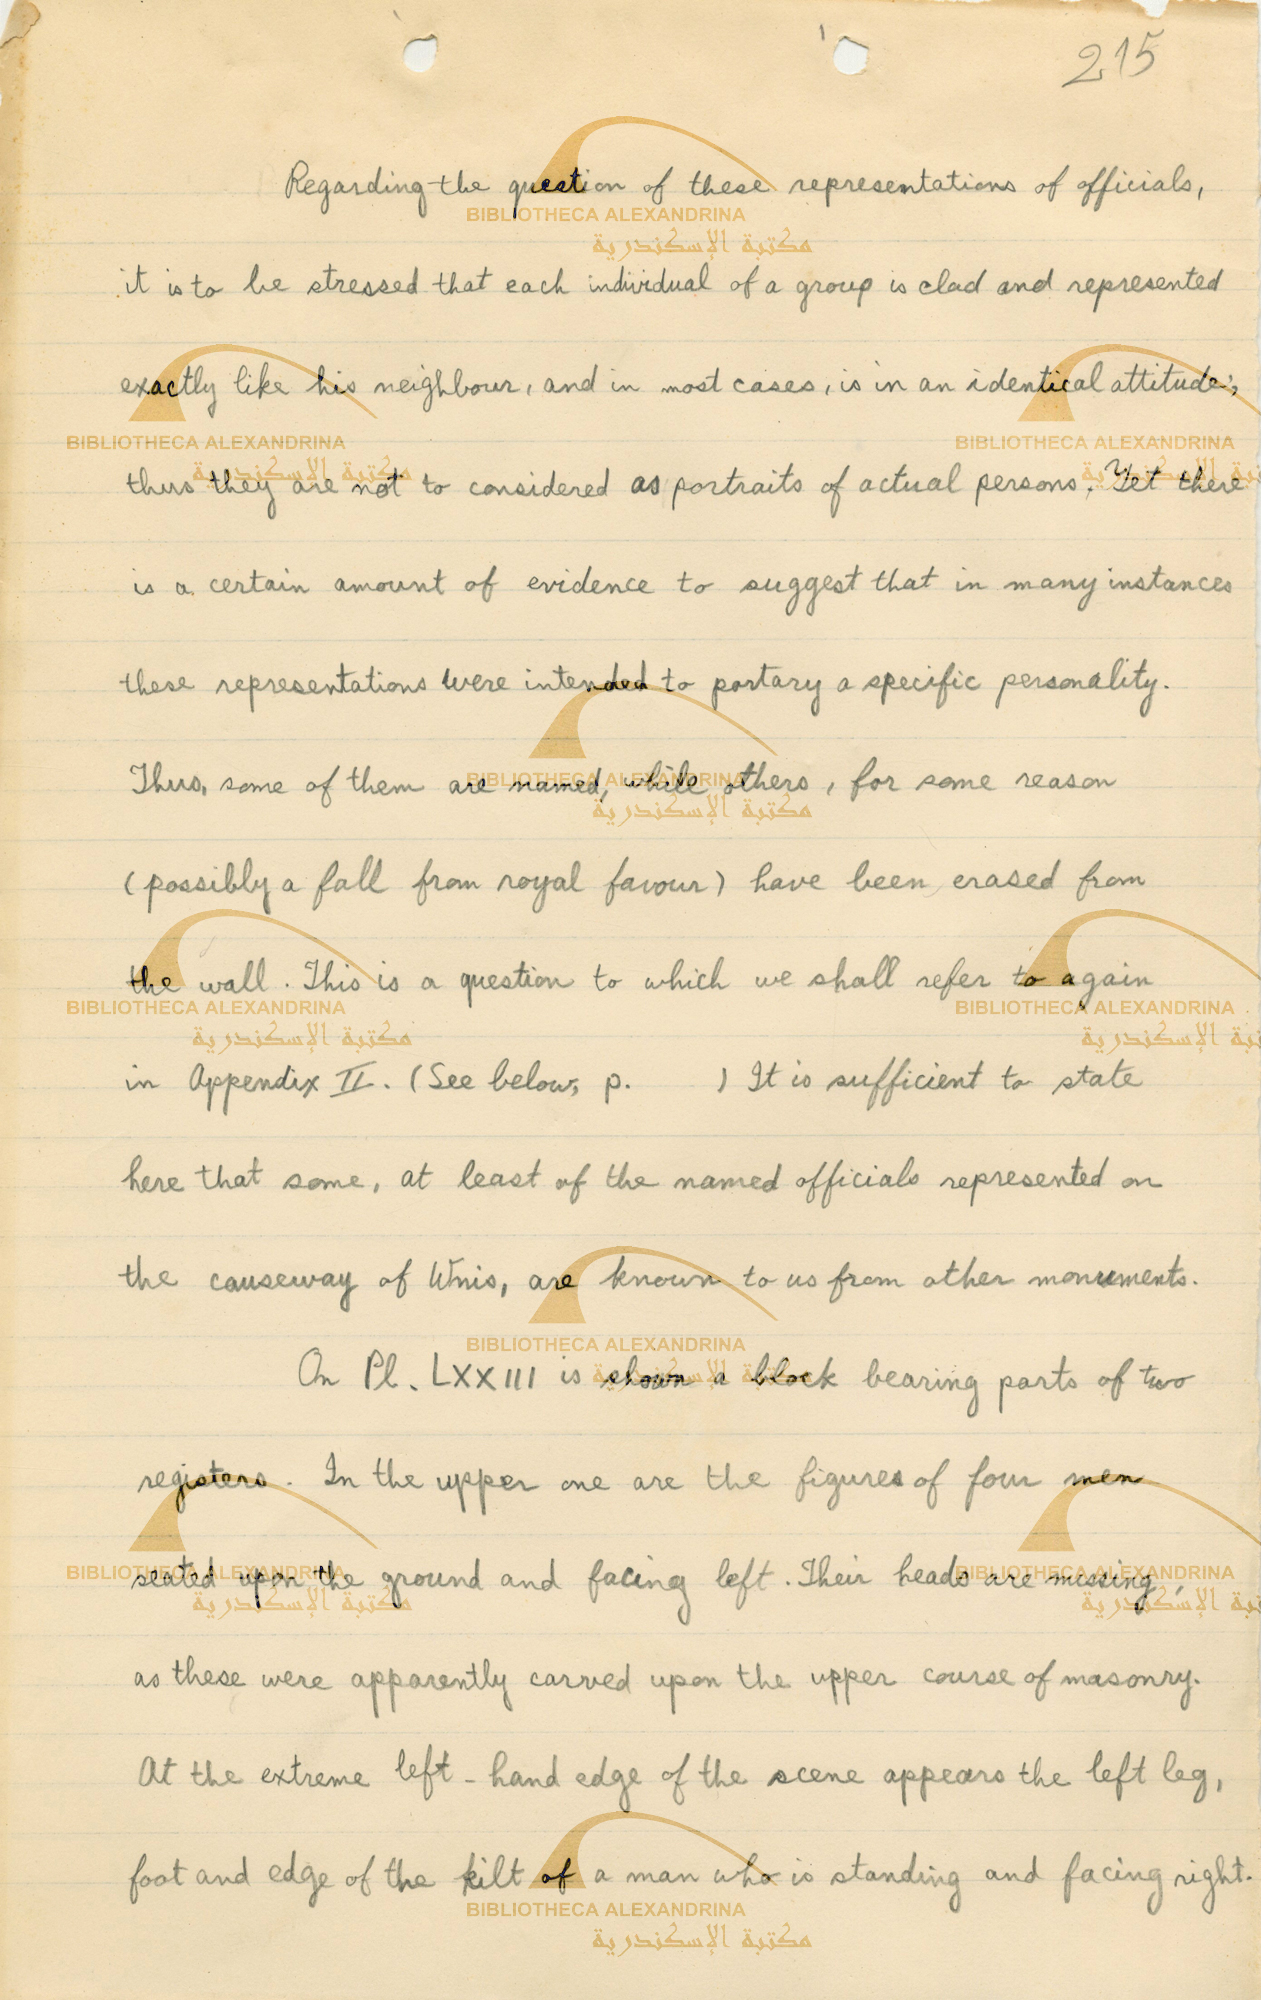 215
Regarding the question of these representations of officials,
it is to be stressed that each individual of a group is clad and represented
exactly like his neighbour, and in most cases, is in an identical attitude;
thus they are not to considered as portraits of actual persons. Yet there
is a certain amount of evidence to suggest that in many instances
these representations were intended to portary a specific personality.
Thus, some of them are named, while others, for some reason
(possibly a fall from royal favour) have been erased from
the wall. This is a question to which we shall refer to again
in Appendix II. (See below, p. ) It is sufficient to state
here that some, at least of the named officials represented on
the causeway of Wnis, are known to us from other monuments.
On Pl. LXXIII is shown a block bearing parts of two
registers. In the upper one are the figures of four men
seated upon the ground and facing left. Their heads are missing,
as these were apparently carved upon the upper course of masonry.
At the extreme left-hand edge of the scene appears the left leg,
foot and edge of the kilt of a man who is standing and facing right.
BIBLIOTHECA ALEXANDRINA
مكتبة الإسكندرية